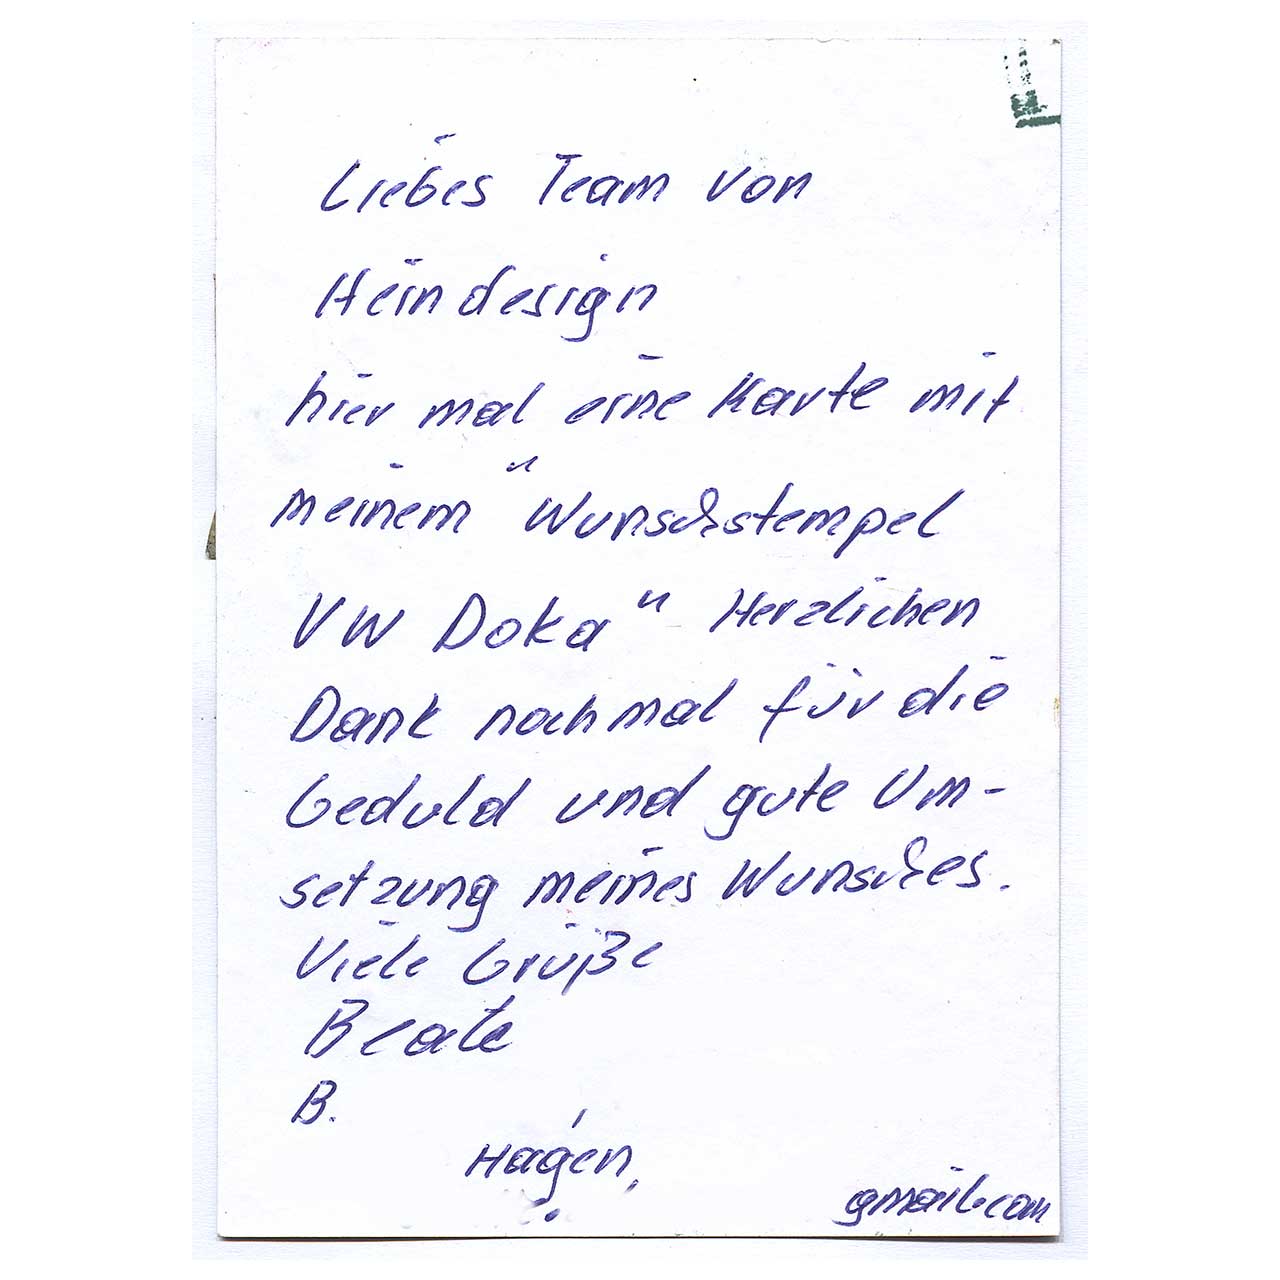 Liebes Team von
Heindesign
hier mal eine Karte mit
meinem "Wunschstempel
VW Doka" Herzlichen
Dank nochmal für die
Geduld und gute Um-
setzung meines Wunsches.
Viele Grüße
Beate
B.
Hagen,
gmail.com